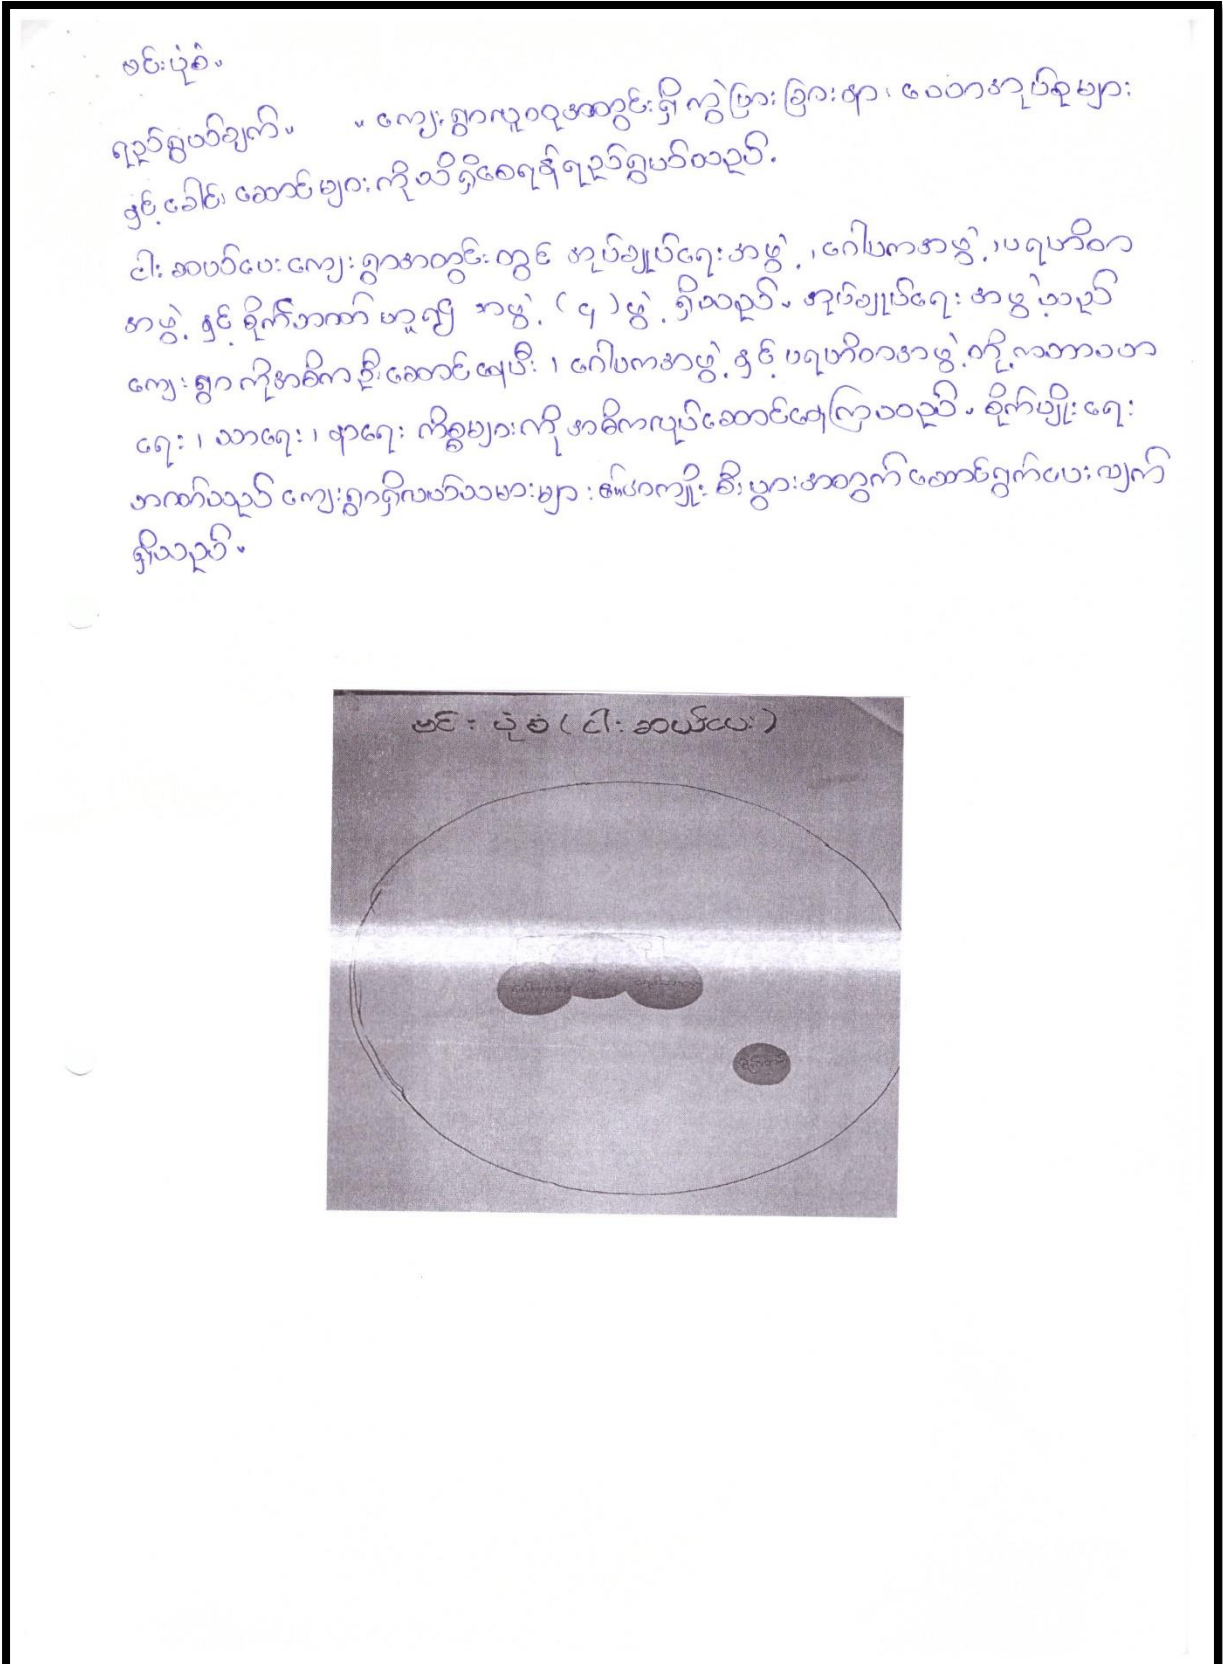 ဗင်းပုံစံ။
ရည်ရွယ်ချက်။ ။ ကျေးရွာလူထုအတွင်းရှိ ကွဲပြားခြားနား၊ ဝေတာအုပ်စုများ
နှင့် ခေါင်းဆောင်များကို သိရှိစေရန် ရည်ရွယ်သည်။
ငါးဆယ်ပေးကျေးရွာအတွင်းတွင် အုပ်ချုပ်ရေးအဖွဲ့၊ ဂေါပကအဖွဲ့၊ ပရဟိတ
အဖွဲ့ နှင့် စိုက်ဘဏ် ဟူ၍ အဖွဲ့ (၄) ဖွဲ့ ရှိသည်။ အုပ်ချုပ်ရေးအဖွဲ့သည်
ကျေးရွာကိုအဓိကဦးဆောင်နေပြီး၊ ဂေါပကအဖွဲ့ နှင့် ပရဟိတအဖွဲ့တို့ ကဘာသာ
ရေး၊ သာရေး၊ နာရေး ကိစ္စများကို အဓိကလုပ်ဆောင်နေကြသည်။ စိုက်ပျိုးရေး
ဘဏ်သည် ကျေးရွာရှိလယ်သမားများ စီးပွားအတွက် ဆောင်ရွက်ပေးလျက်
ရှိသည်။
ဗင်းပုံစံ (ငါးဆယ်ပေး)